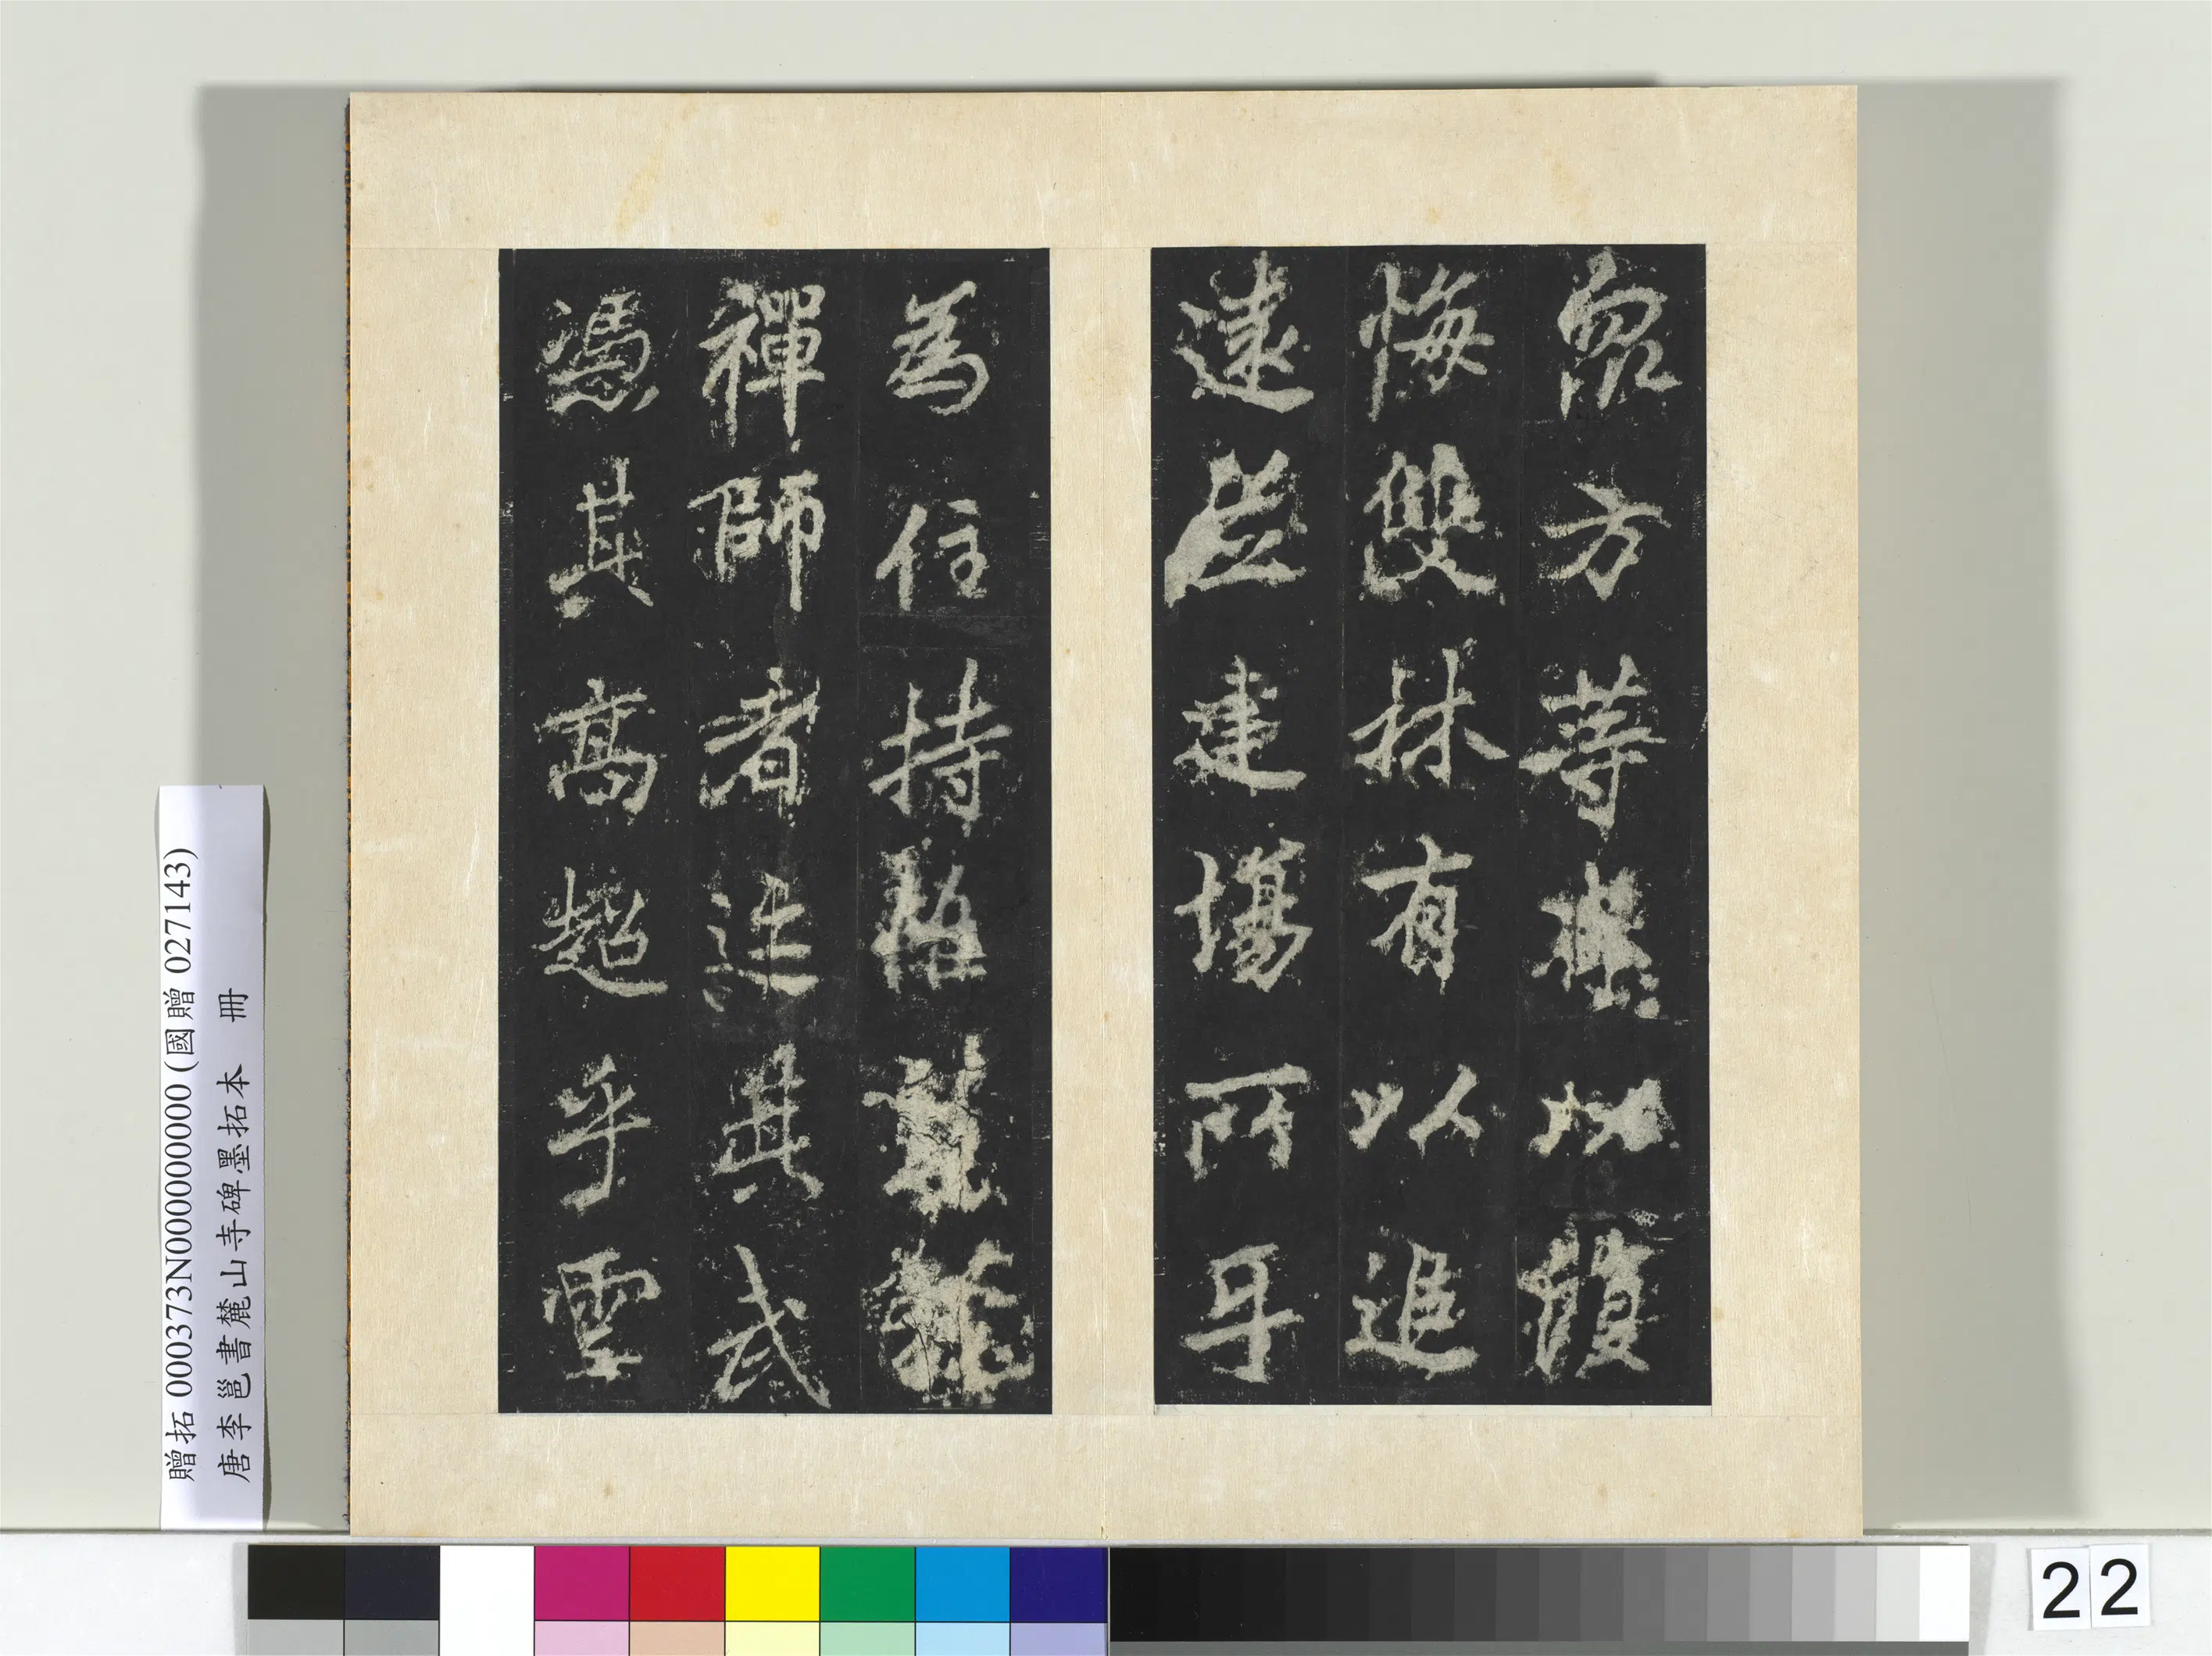 眾方等以
悔雙林有以追
遠建場所牙
為住持
禪師者其武
憑其高超乎雲
贈拓 000373N000000000 (國贈 027143)
唐李邕書麓山寺碑墨拓本 冊
22